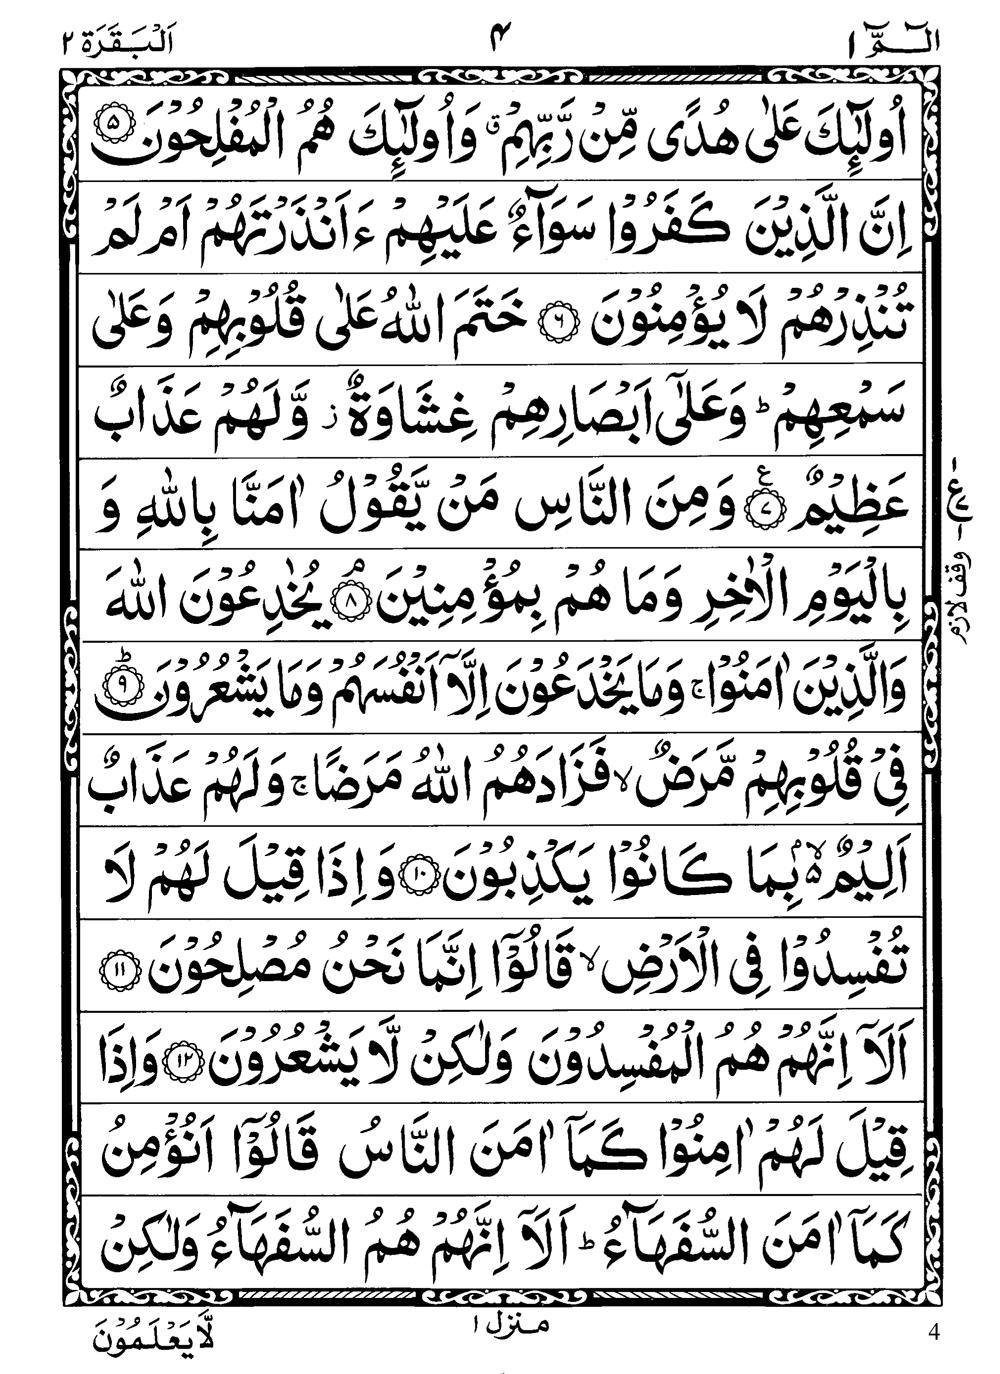 الٓمّٓ ١ ٤ اَلْبَقَرَة ٢
اُولٰٓئِكَ عَلٰى هُدًى مِّنْ رَّبِّهِمْ ۗ وَاُولٰٓئِكَ هُمُ الْمُفْلِحُوْنَ ۝۵
اِنَّ الَّذِيْنَ كَفَرُوْا سَوَآءٌ عَلَيْهِمْ ءَاَنْذَرْتَهُمْ اَمْ لَمْ
تُنْذِرْهُمْ لَا يُؤْمِنُوْنَ ۝۶ خَتَمَ اللّٰهُ عَلٰى قُلُوْبِهِمْ وَعَلٰى
سَمْعِهِمْ ؕ وَعَلٰٓى اَبْصَارِهِمْ غِشَاوَةٌ ز وَّلَهُمْ عَذَابٌ
عَظِيْمٌ ۝۷ ع وَمِنَ النَّاسِ مَنْ يَّقُوْلُ اٰمَنَّا بِاللّٰهِ وَ
بِالْيَوْمِ الْاٰخِرِ وَمَا هُمْ بِمُؤْمِنِيْنَ ۝۸ۘ يُخٰدِعُوْنَ اللّٰهَ
وَالَّذِيْنَ اٰمَنُوْا ۚ وَمَا يَخْدَعُوْنَ اِلَّآ اَنْفُسَهُمْ وَمَا يَشْعُرُوْنَ ۝۹ؕ
فِيْ قُلُوْبِهِمْ مَّرَضٌ ۙ فَزَادَهُمُ اللّٰهُ مَرَضًا ۚ وَلَهُمْ عَذَابٌ
اَلِيْمٌۢ ۙ۬ بِمَا كَانُوْا يَكْذِبُوْنَ ۝۱۰ وَاِذَا قِيْلَ لَهُمْ لَا
تُفْسِدُوْا فِى الْاَرْضِ ۙ قَالُوْٓا اِنَّمَا نَحْنُ مُصْلِحُوْنَ ۝۱۱
اَلَآ اِنَّهُمْ هُمُ الْمُفْسِدُوْنَ وَلٰكِنْ لَّا يَشْعُرُوْنَ ۝۱۲ وَاِذَا
قِيْلَ لَهُمْ اٰمِنُوْا كَمَآ اٰمَنَ النَّاسُ قَالُوْٓا اَنُؤْمِنُ
كَمَآ اٰمَنَ السُّفَهَآءُ ؕ اَلَآ اِنَّهُمْ هُمُ السُّفَهَآءُ وَلٰكِنْ
وقف لازم
لَّا يَعْلَمُوْنَ منزل ١ 4